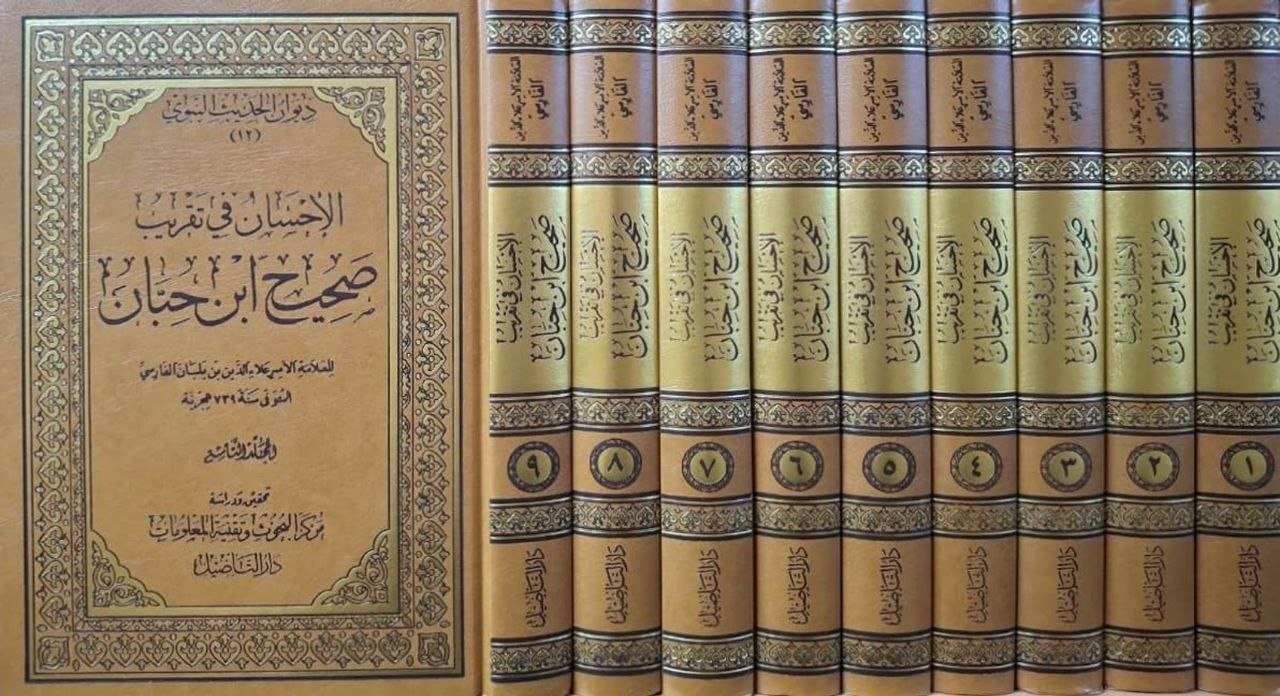 ديوان الحديث النبوي
(١٢)
الإحسان في تقريب
صحيح ابن حبان
للعلامة الأمير علاء الدين بن بلبان الفارسي
المتوفى سنة ٧٣٩ هجرية
المجلد التاسع
تحقيق ودراسة
مركز البحوث وتقنية المعلومات
دار التأصيل
العلامة الأمير علاء الدين
الفارسي
الإحسان في تقريب
صحيح ابن حبان
١
دار التأصيل
العلامة الأمير علاء الدين
الفارسي
الإحسان في تقريب
صحيح ابن حبان
٢
دار التأصيل
العلامة الأمير علاء الدين
الفارسي
الإحسان في تقريب
صحيح ابن حبان
٣
دار التأصيل
العلامة الأمير علاء الدين
الفارسي
الإحسان في تقريب
صحيح ابن حبان
٤
دار التأصيل
العلامة الأمير علاء الدين
الفارسي
الإحسان في تقريب
صحيح ابن حبان
٥
دار التأصيل
العلامة الأمير علاء الدين
الفارسي
الإحسان في تقريب
صحيح ابن حبان
٦
دار التأصيل
العلامة الأمير علاء الدين
الفارسي
الإحسان في تقريب
صحيح ابن حبان
٧
دار التأصيل
العلامة الأمير علاء الدين
الفارسي
الإحسان في تقريب
صحيح ابن حبان
٨
دار التأصيل
العلامة الأمير علاء الدين
الفارسي
الإحسان في تقريب
صحيح ابن حبان
٩
دار التأصيل